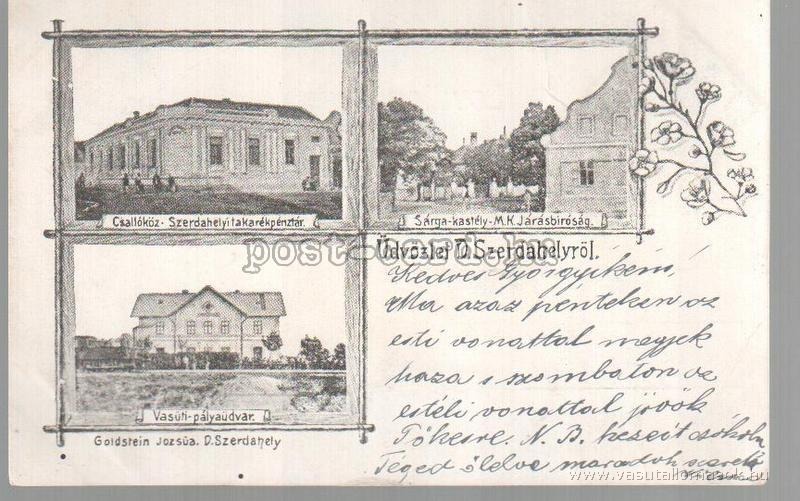 Csallóköz-Szerdahelyi takarékpénztár.
Sárga-kastély-M.K.Járásbíróság.
Üdvözlet D.Szerdahelyről.
Vasúti-pályaudvar.
Goldstein Jozsúa. D.Szerdahely
Kedves Györgyikém!
Ma azaz pénteken az
esti vonattal megyek
haza s szombaton az
estéli vonattal jövök
N.B. kezeit csókolva
Téged ölelve maradok szerető
www.vasutallomasok.hu